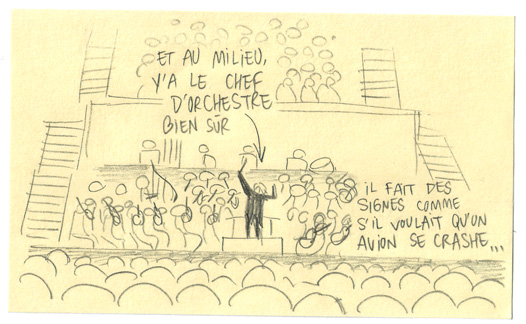 ET AU MILIEU,
Y'A LE CHEF
D'ORCHESTRE
BIEN SÛR
IL FAIT DES
SIGNES COMME
S'IL VOULAIT QU'UN
AVION SE CRASHE...